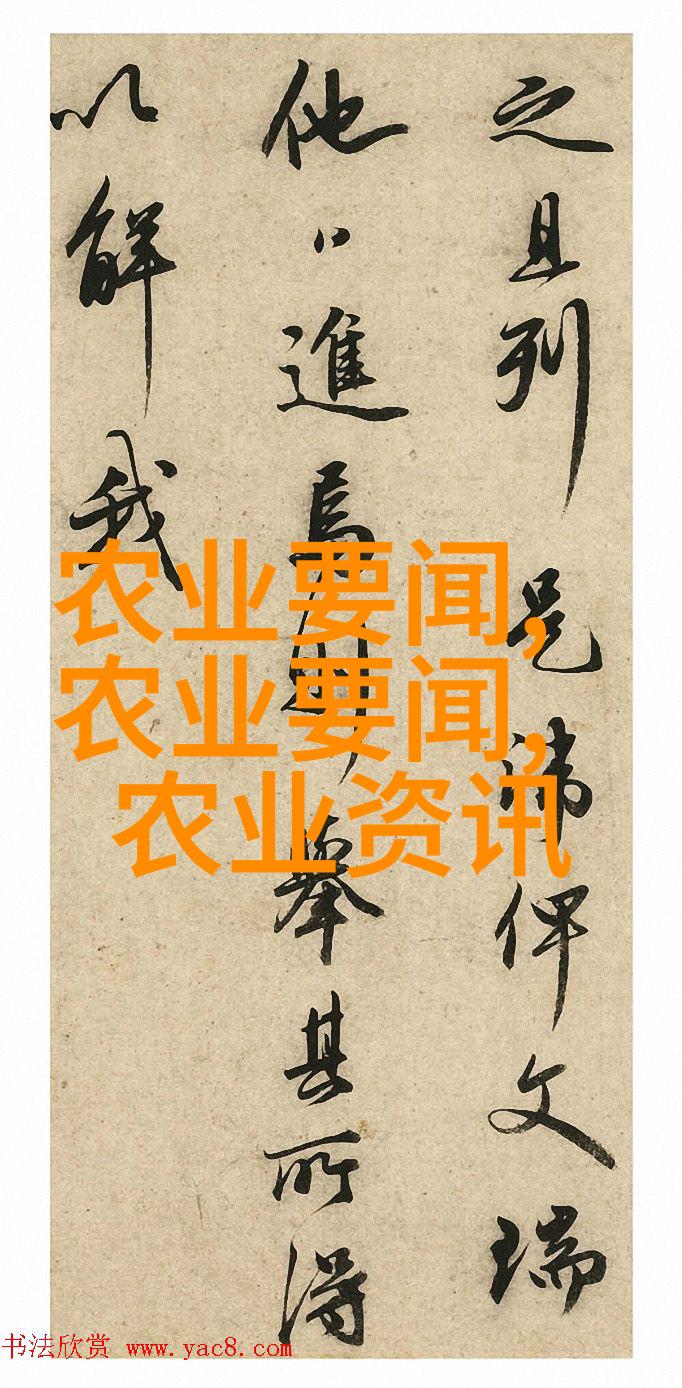 之且列是諱俾文瑞
他日進焉則舉其所得
以解我
农业要闻,
农业要闻,
农业资讯
书法欣赏 www.yac8.com